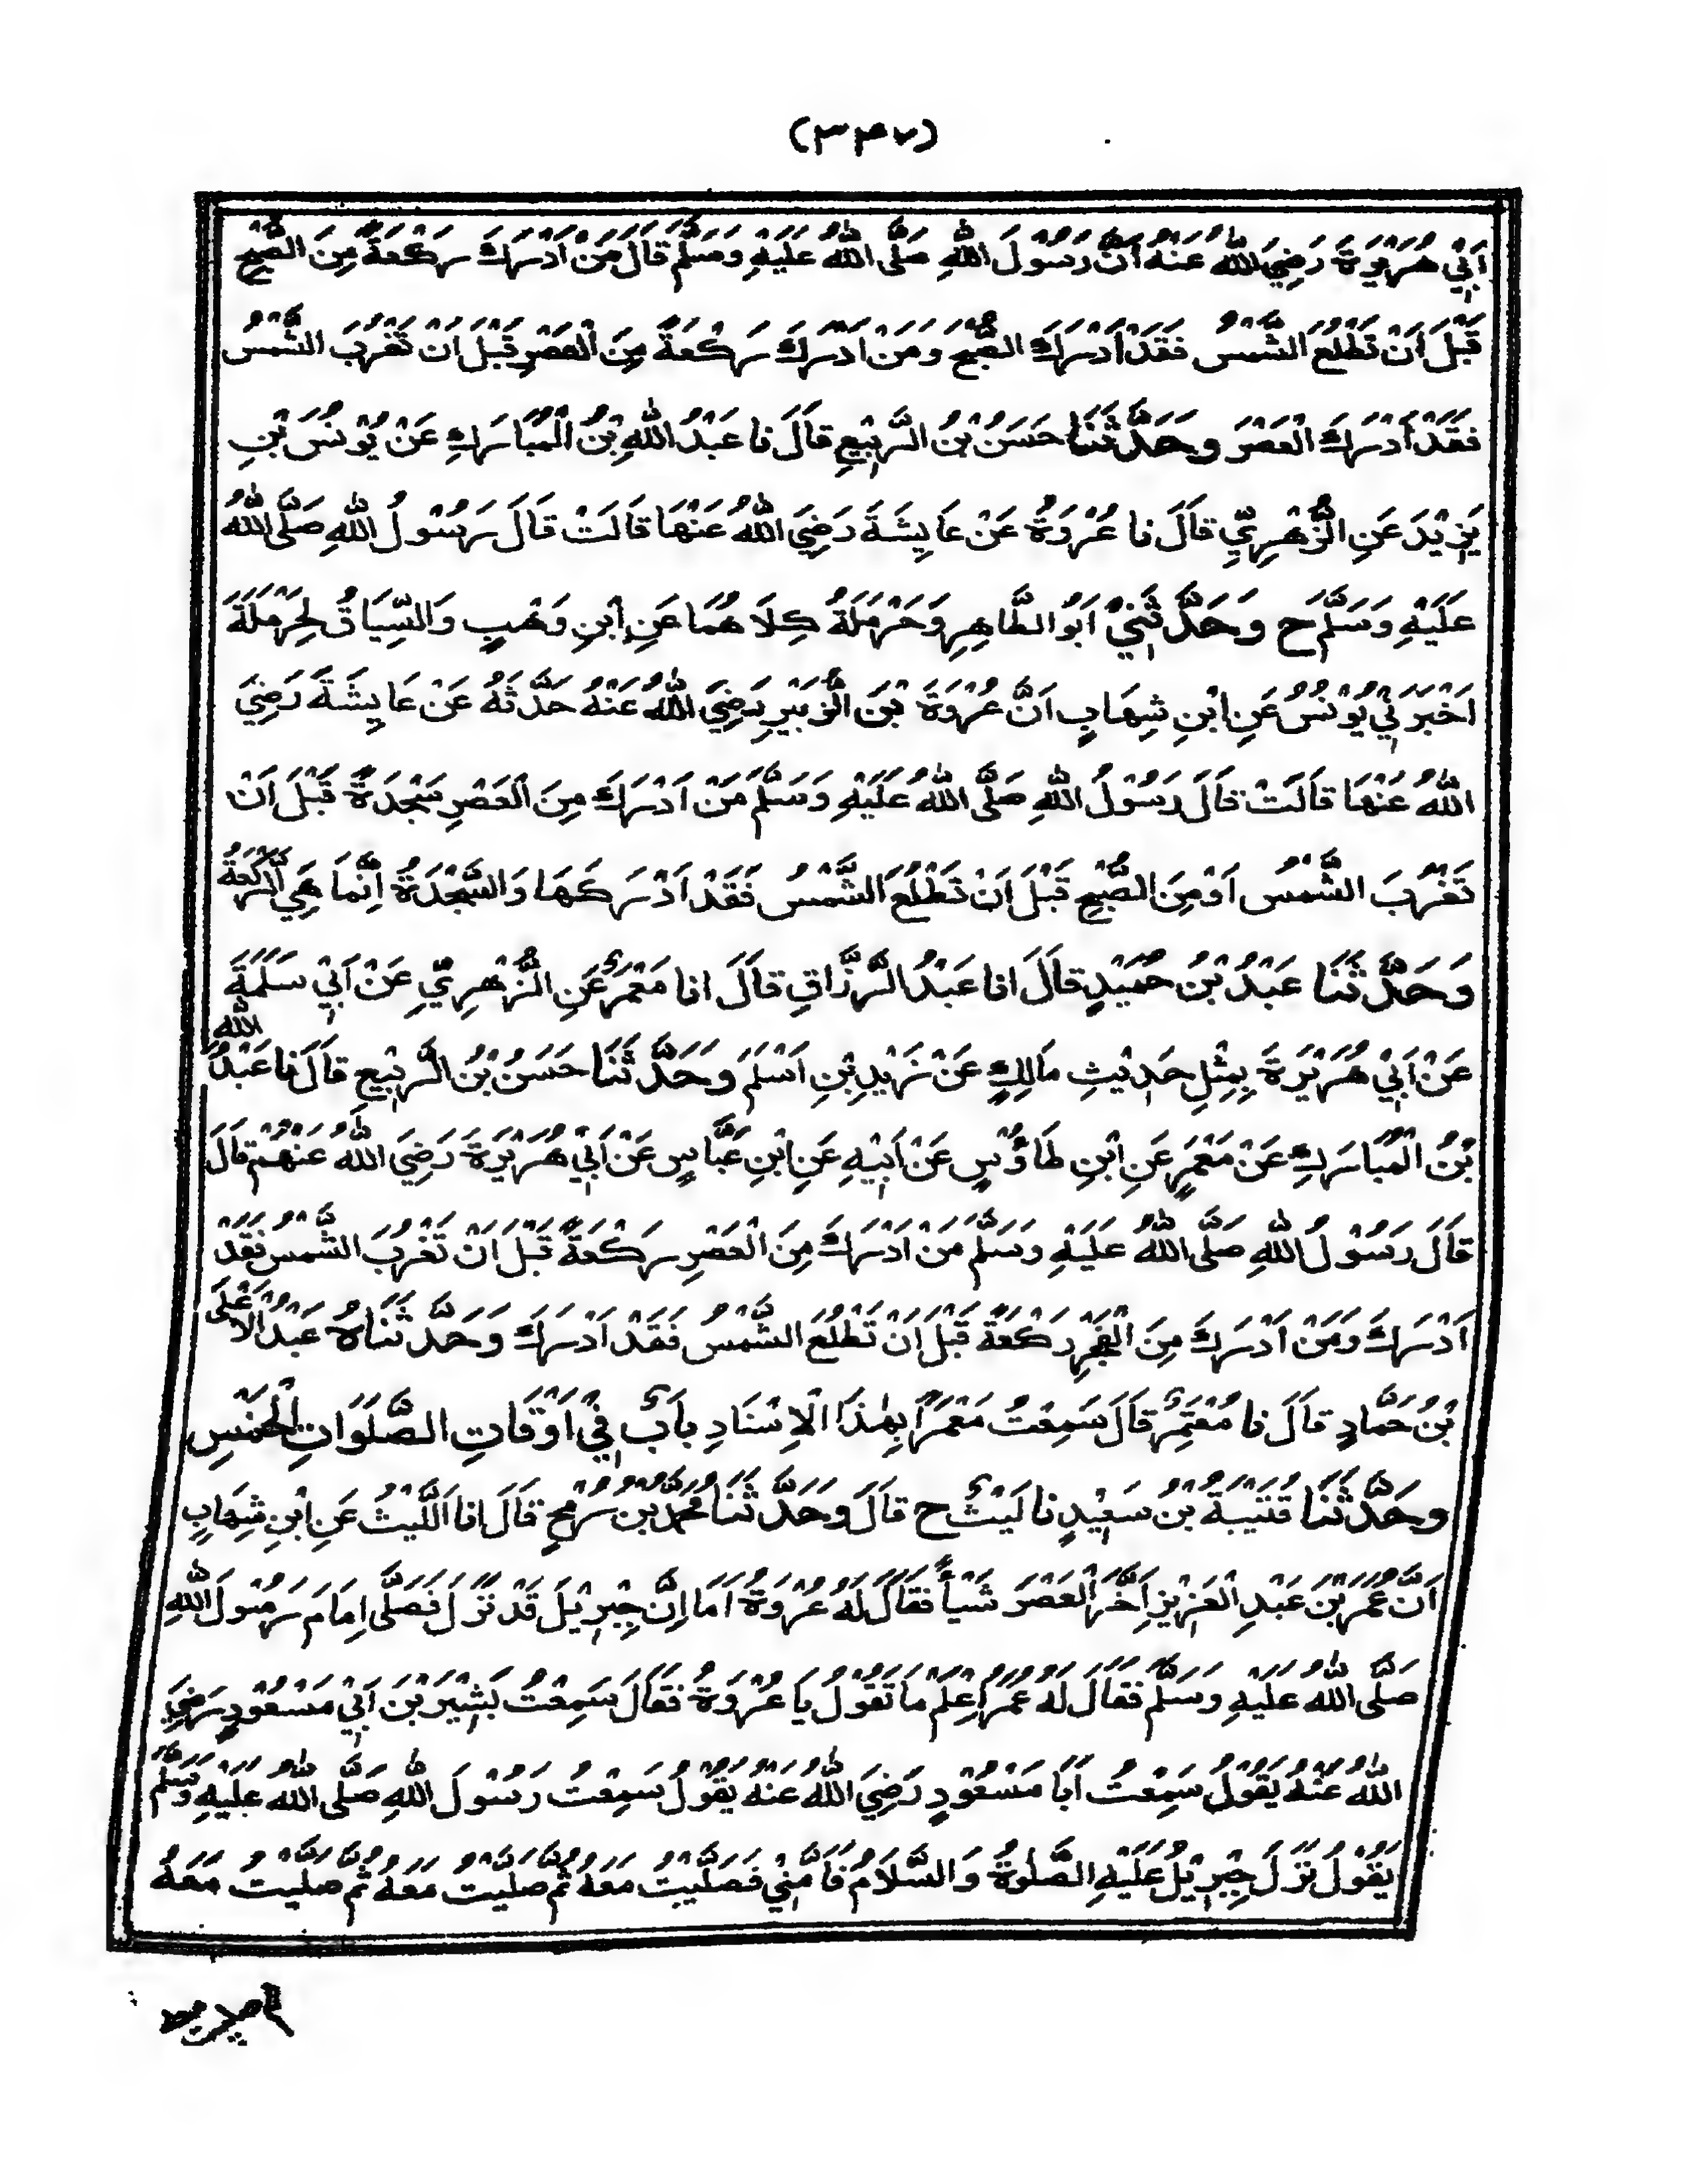 (٣٤٧)
اَبِيْ هُرَيْرَةَ رَضِيَ اللهُ عَنْهُ اَنَّ رَسُوْلَ اللهِ صَلَّى اللهُ عَلَيْهِ وَسَلَّمَ قَالَ مَنْ اَدْرَكَ رَكْعَةً مِنَ الصُّبْحِ
قَبْلَ اَنْ تَطْلُعَ الشَّمْسُ فَقَدْ اَدْرَكَ الصُّبْحَ وَمَنْ اَدْرَكَ رَكْعَةً مِنَ الْعَصْرِ قَبْلَ اَنْ تَغْرُبَ الشَّمْسُ
فَقَدْ اَدْرَكَ الْعَصْرَ وَحَدَّثَنَا حَسَنُ بْنُ الرَّبِيْعِ قَالَ نا عَبْدُ اللهِ بْنُ الْمُبَارَكِ عَنْ يُوْنُسَ بْنِ
يَزِيْدَ عَنِ الزُّهْرِيِّ قَالَ نا عُرْوَةُ عَنْ عَايِشَةَ رَضِيَ اللهُ عَنْهَا قَالَتْ قَالَ رَسُوْلُ اللهِ صَلَّى اللهُ
عَلَيْهِ وَسَلَّمَ ح وَحَدَّثَنِيْ اَبُو الطَّاهِرِ وَحَرْمَلَةُ كِلَا هُمَا عَنِ ابْنِ وَهْبٍ وَالسِّيَاقُ لِحَرْمَلَةَ
اَخْبَرَنِيْ يُوْنُسُ عَنِ ابْنِ شِهَابٍ اَنَّ عُرْوَةَ بْنَ الزُّبَيْرِ رَضِيَ اللهُ عَنْهُ حَدَّثَهُ عَنْ عَايِشَةَ رَضِيَ
اللهُ عَنْهَا قَالَتْ قَالَ رَسُوْلُ اللهِ صَلَّى اللهُ عَلَيْهِ وَسَلَّمَ مَنْ اَدْرَكَ مِنَ الْعَصْرِ سَجْدَةً قَبْلَ اَنْ
تَغْرُبَ الشَّمْسُ اَوْ مِنَ الصُّبْحِ قَبْلَ اَنْ تَطْلُعَ الشَّمْسُ فَقَدْ اَدْرَكَهَا وَالسَّجْدَةُ اِنَّمَا هِيَ الرَّكْعَةُ
وَحَدَّثَنَا عَبْدُ بْنُ حُمَيْدٍ قَالَ انا عَبْدُ الرَّزَّاقِ قَالَ انا مَعْمَرٌ عَنِ الزُّهْرِيِّ عَنْ اَبِيْ سَلَمَةَ
عَنْ اَبِيْ هُرَيْرَةَ بِمِثْلِ حَدِيْثِ مَالِكٍ عَنْ زَيْدِ بْنِ اَسْلَمَ وَحَدَّثَنَا حَسَنُ بْنُ الرَّبِيْعِ قَالَ نا عَبْدُ اللهِ
بْنُ الْمُبَارَكِ عَنْ مَعْمَرٍ عَنِ ابْنِ طَاوُسٍ عَنْ اَبِيْهِ عَنِ ابْنِ عَبَّاسٍ عَنْ اَبِيْ هُرَيْرَةَ رَضِيَ اللهُ عَنْهُمْ قَالَ
قَالَ رَسُوْلُ اللهِ صَلَّى اللهُ عَلَيْهِ وَسَلَّمَ مَنْ اَدْرَكَ مِنَ الْعَصْرِ رَكْعَةً قَبْلَ اَنْ تَغْرُبَ الشَّمْسُ فَقَدْ
اَدْرَكَ وَمَنْ اَدْرَكَ مِنَ الْفَجْرِ رَكْعَةً قَبْلَ اَنْ تَطْلُعَ الشَّمْسُ فَقَدْ اَدْرَكَ وَحَدَّثَنَاهُ عَبْدُ الْاَعْلَى
بْنُ حَمَّادٍ قَالَ نا مُعْتَمِرٌ قَالَ سَمِعْتُ مَعْمَرًا بِهٰذَا الْاِسْنَادِ بَابٌ فِيْ اَوْقَاتِ الصَّلَوَاتِ الْخَمْسِ
وَحَدَّثَنَا قُتَيْبَةُ بْنُ سَعِيْدٍ نا لَيْثٌ ح قَالَ وَحَدَّثَنَا مُحَمَّدُ بْنُ رُمْحٍ قَالَ انا اللَّيْثُ عَنِ ابْنِ شِهَابٍ
اَنَّ عُمَرَ بْنَ عَبْدِ الْعَزِيْزِ اَخَّرَ الْعَصْرَ شَيْأً فَقَالَ لَهُ عُرْوَةُ اَمَا اِنَّ جِبْرِيْلَ قَدْ نَزَلَ فَصَلَّى اِمَامَ رَسُوْلِ اللهِ
صَلَّى اللهُ عَلَيْهِ وَسَلَّمَ فَقَالَ لَهُ عُمَرُ اعْلَمْ مَا تَقُوْلُ يَا عُرْوَةُ فَقَالَ سَمِعْتُ بَشِيْرَ بْنَ اَبِيْ مَسْعُوْدٍ رَضِيَ
اللهُ عَنْهُ يَقُوْلُ سَمِعْتُ اَبَا مَسْعُوْدٍ رَضِيَ اللهُ عَنْهُ يَقُوْلُ سَمِعْتُ رَسُوْلَ اللهِ صَلَّى اللهُ عَلَيْهِ وَسَلَّمَ
يَقُوْلُ نَزَلَ جِبْرِيْلُ عَلَيْهِ الصَّلٰوةُ وَالسَّلَامُ فَاَمَّنِيْ فَصَلَّيْتُ مَعَهُ ثُمَّ صَلَّيْتُ مَعَهُ ثُمَّ صَلَّيْتُ مَعَهُ